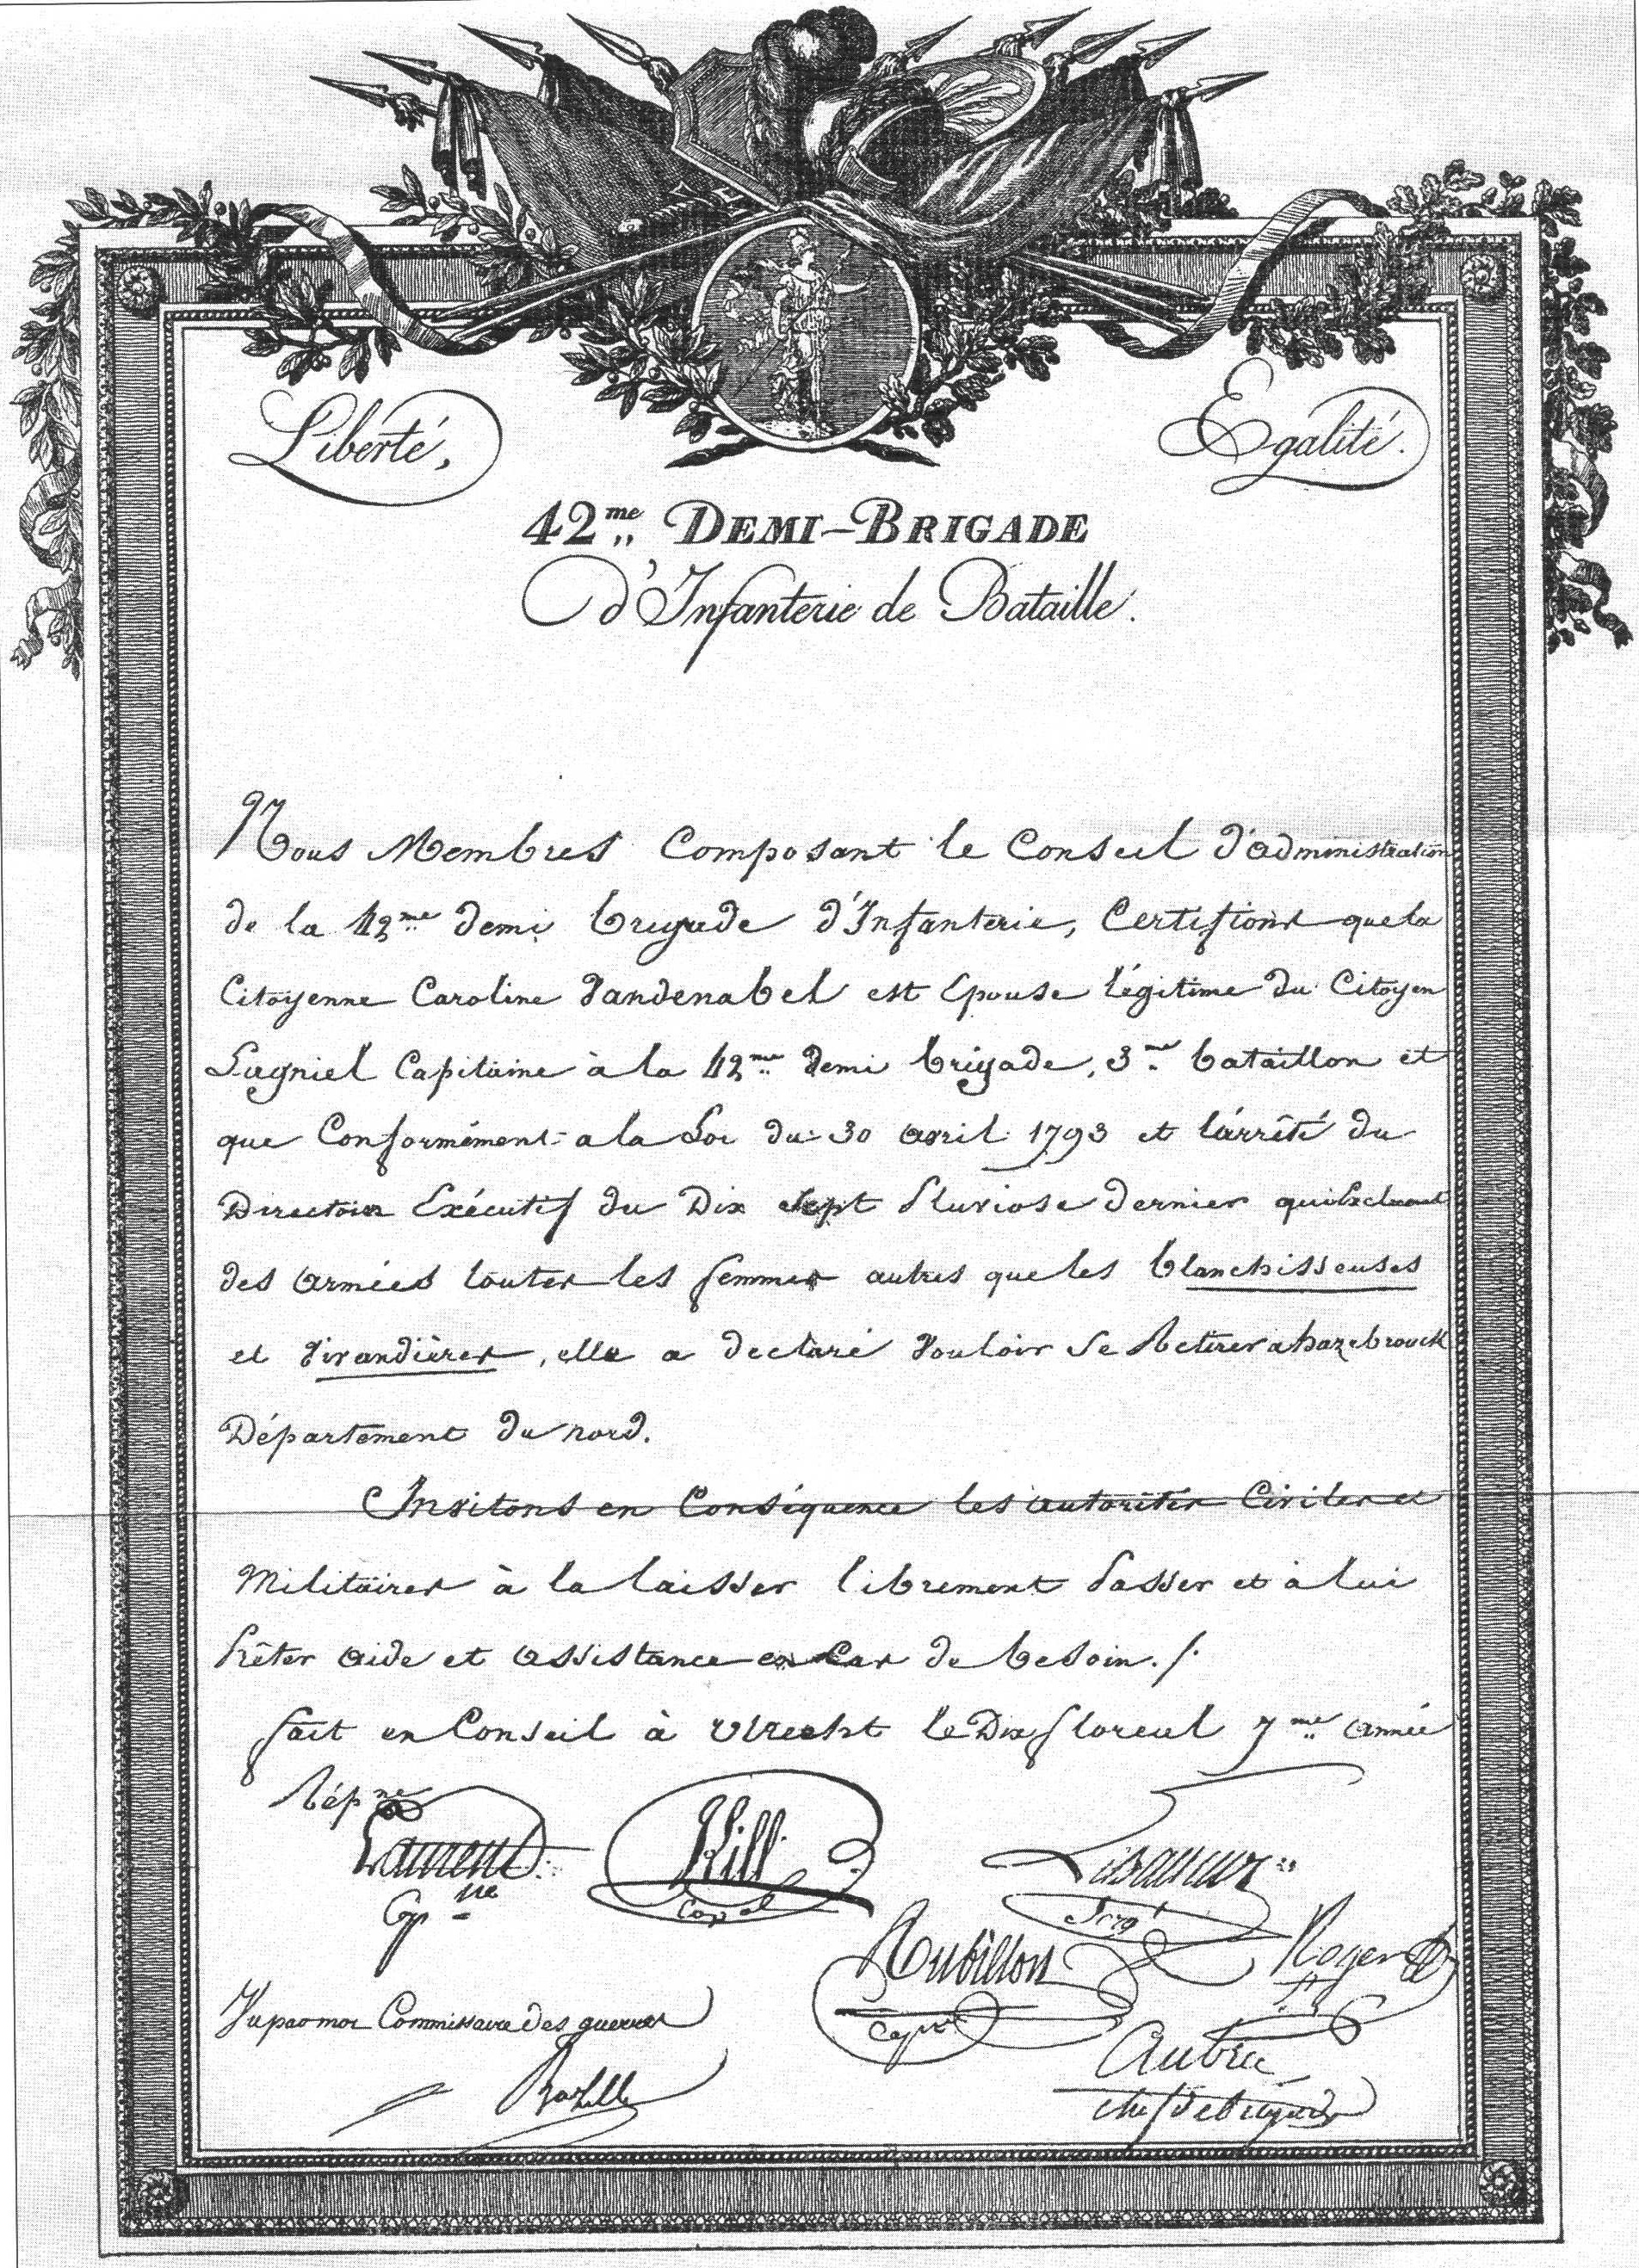 Liberté,
Egalité.
42me DEMI-BRIGADE
d'Infanterie de Bataille.
Nous Membres Composant le Conseil d'administration
de la 42me demi brigade d'Infanterie, Certifions que la
Citoyenne Caroline Vandenabel est Epouse légitime du Citoyen
Lagniel Capitaine à la 42me demi brigade, 3me bataillon et
que Conformément a la Loi du 30 avril 1793 et l'arrêté du
Directoire Exécutif du Dix Sept Pluviose dernier qui Excluent
des armées toutes les femmes autres que les blanchisseuses
et Vivandières, elle a declaré Vouloir Se Retirer a hazebrouck
Département du nord.
Invitons en Conséquence les autorités Civiles et
Militaires à la laisser librement Passer et à lui
Prêter aide et assistance en Cas de besoin./.
fait en Conseil à Utrecht le Dix floreal 7me année
Répne
Laurent
Kill
Cpne
Capal
Sergt
Rubillon
Royer
Vu par moi Commissaire des guerres
Aubrée
chef de brigade